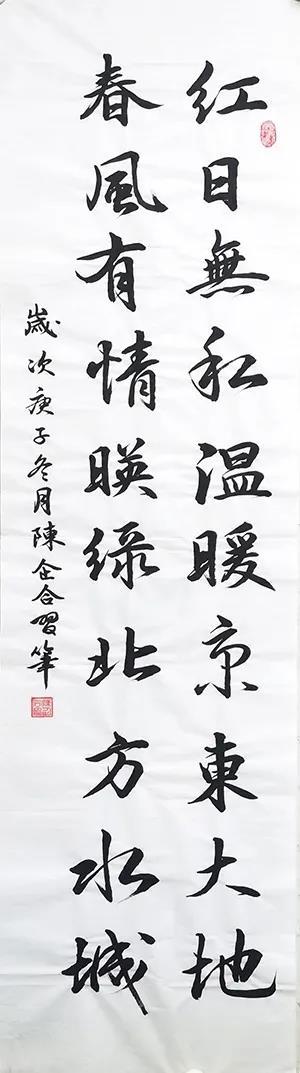 红日無私温暖京東大地
春風有情暎绿北方水城
歲次庚子冬月陳企合習筆